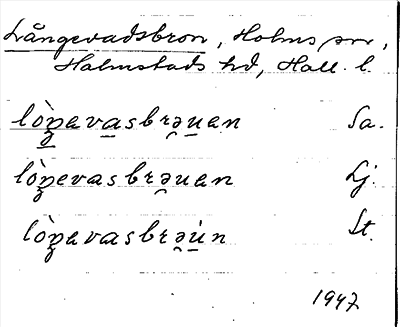 Långevadsbron, Holms sn,
Halmstads hd, Hall. l.
lòŋevasbrə̯uen Sa.
lòŋevasbrə̯uen Lj.
lòŋevasbrə̯ùn St.
1947